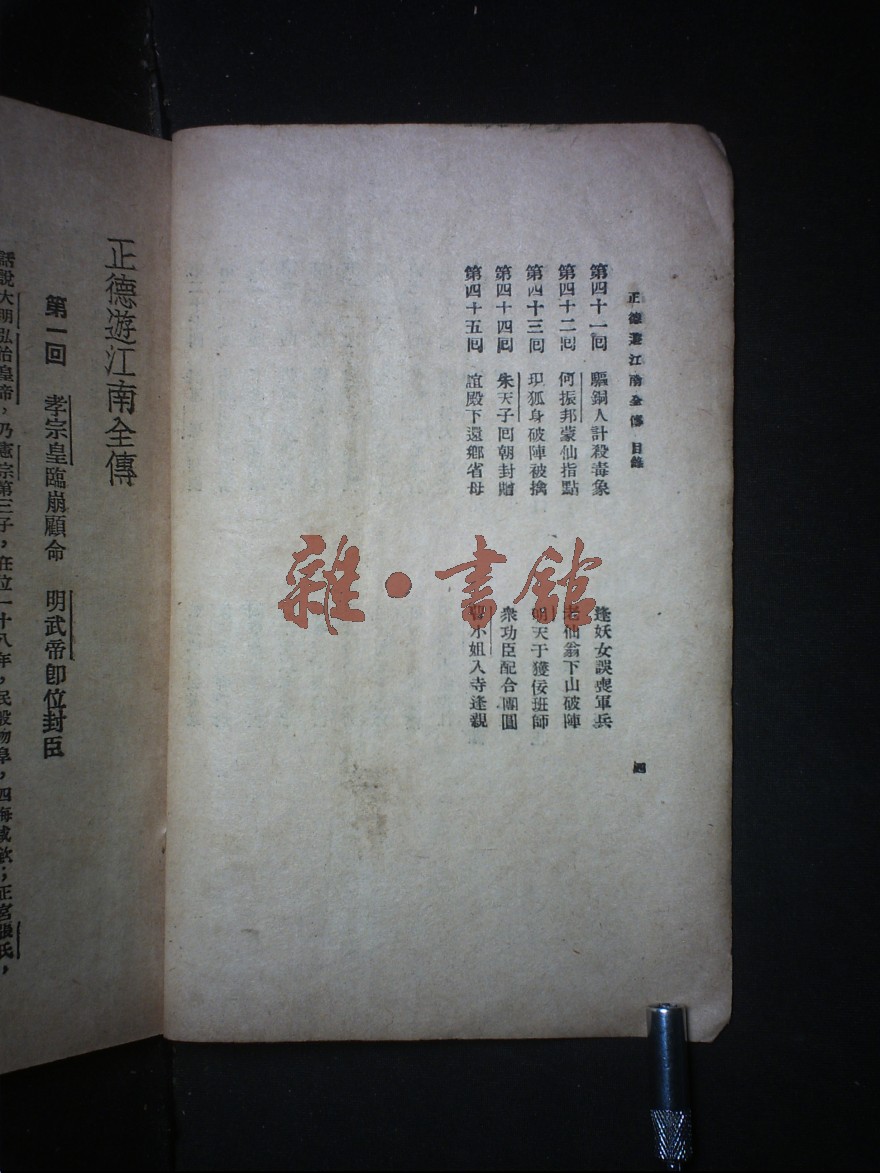 正德遊江南全傳 目錄
第四十一回 驅銅人計殺毒象 逢妖女誤喪軍兵
第四十二回 何振邦蒙仙指點 老仙翁下山破陣
第四十三回 現狐身破陣被擒 明天子獲佞班師
第四十四回 朱天子回朝封贈 衆功臣配合團圓
第四十五回 誼殿下還鄉省母 小姐入寺逢親
四
雜·書館
正德遊江南全傳
第一回 孝宗皇臨崩顧命 明武帝卽位封臣
話說大明弘治皇帝，乃憲宗第三子，在位一十八年，民殷物阜，四海咸歌；正宮張氏，